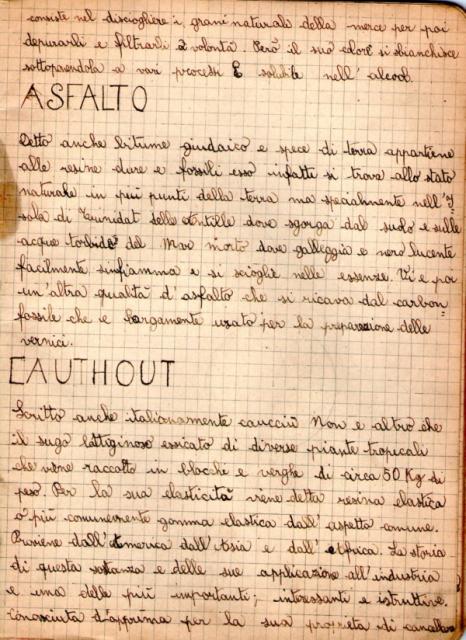 consiste nel disciogliere i grani naturali della merce per poi
depurarli e filtrarli a volontà. Però il suo colore si sbianchisce
sottoponendola a vari processi È solubile nell' alcool.
ASFALTO
Detto anche bitume giudaico e spece di terra appartiene
alle resine dure e fossili esso infatti si trova allo stato
naturale in più punti della terra ma specialmente nell'I
sola di delle Antille dove sgorga dal suolo e sulle
acque torbide del Mar morto dove galleggia e nero lucente
facilmente sinfiamma e si scioglie nelle essenze. Vi e poi
un'altra qualità d'asfalto che si ricava dal carbon
fossile che e largamente usato per la preparazione delle
vernici.
CAUTHOUT
Scritto anche italianamente caucciù Non e altro che
il sugo lattiginoso essicato di diverse piante tropicali
che viene raccolto in blocchi e verghe di circa 50 Kg di
peso. Per la sua elasticità viene detta resina elastica
o più comunemente gomma elastica dall'aspetto comune.
Proviene dall'America dall'Asia e dall'Africa. La storia
di questa sostanza e delle sue applicazione all'industria
e una delle più importanti; interessanti e istruttive.
Conosciuta d'apprima per la sua proprieta di cancellare